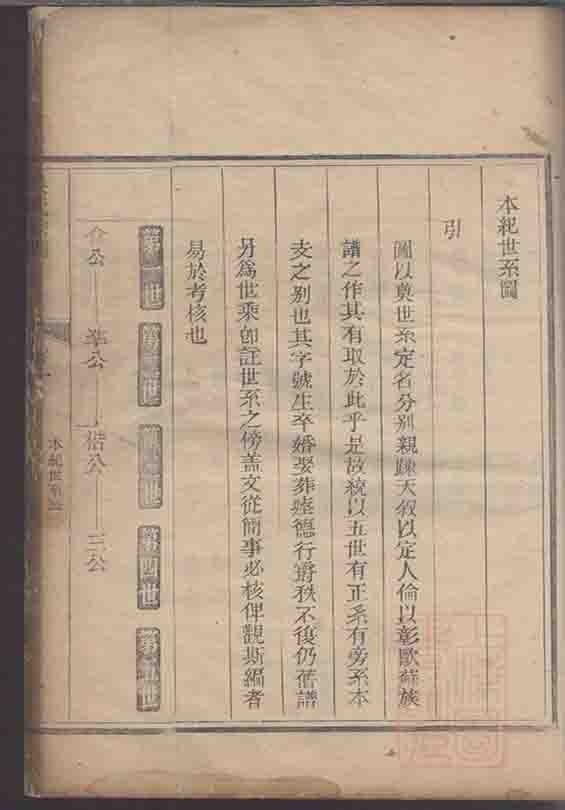 本紀世系圖
引
圖以奠世系定名分別親疎天叙以定人倫以彰歐蘇族
譜之作其有取於此乎是故統以五世有正系有旁系本
支之别也其字號生卒婚娶葬塟德行爵秩不復仍舊譜
另爲世乘卽註世系之傍盖文從簡事必核俾觀斯編者
易於考核也
第一世 第二世 第三世 第四世 第五世
公 準公 偕公 三公
本紀世系